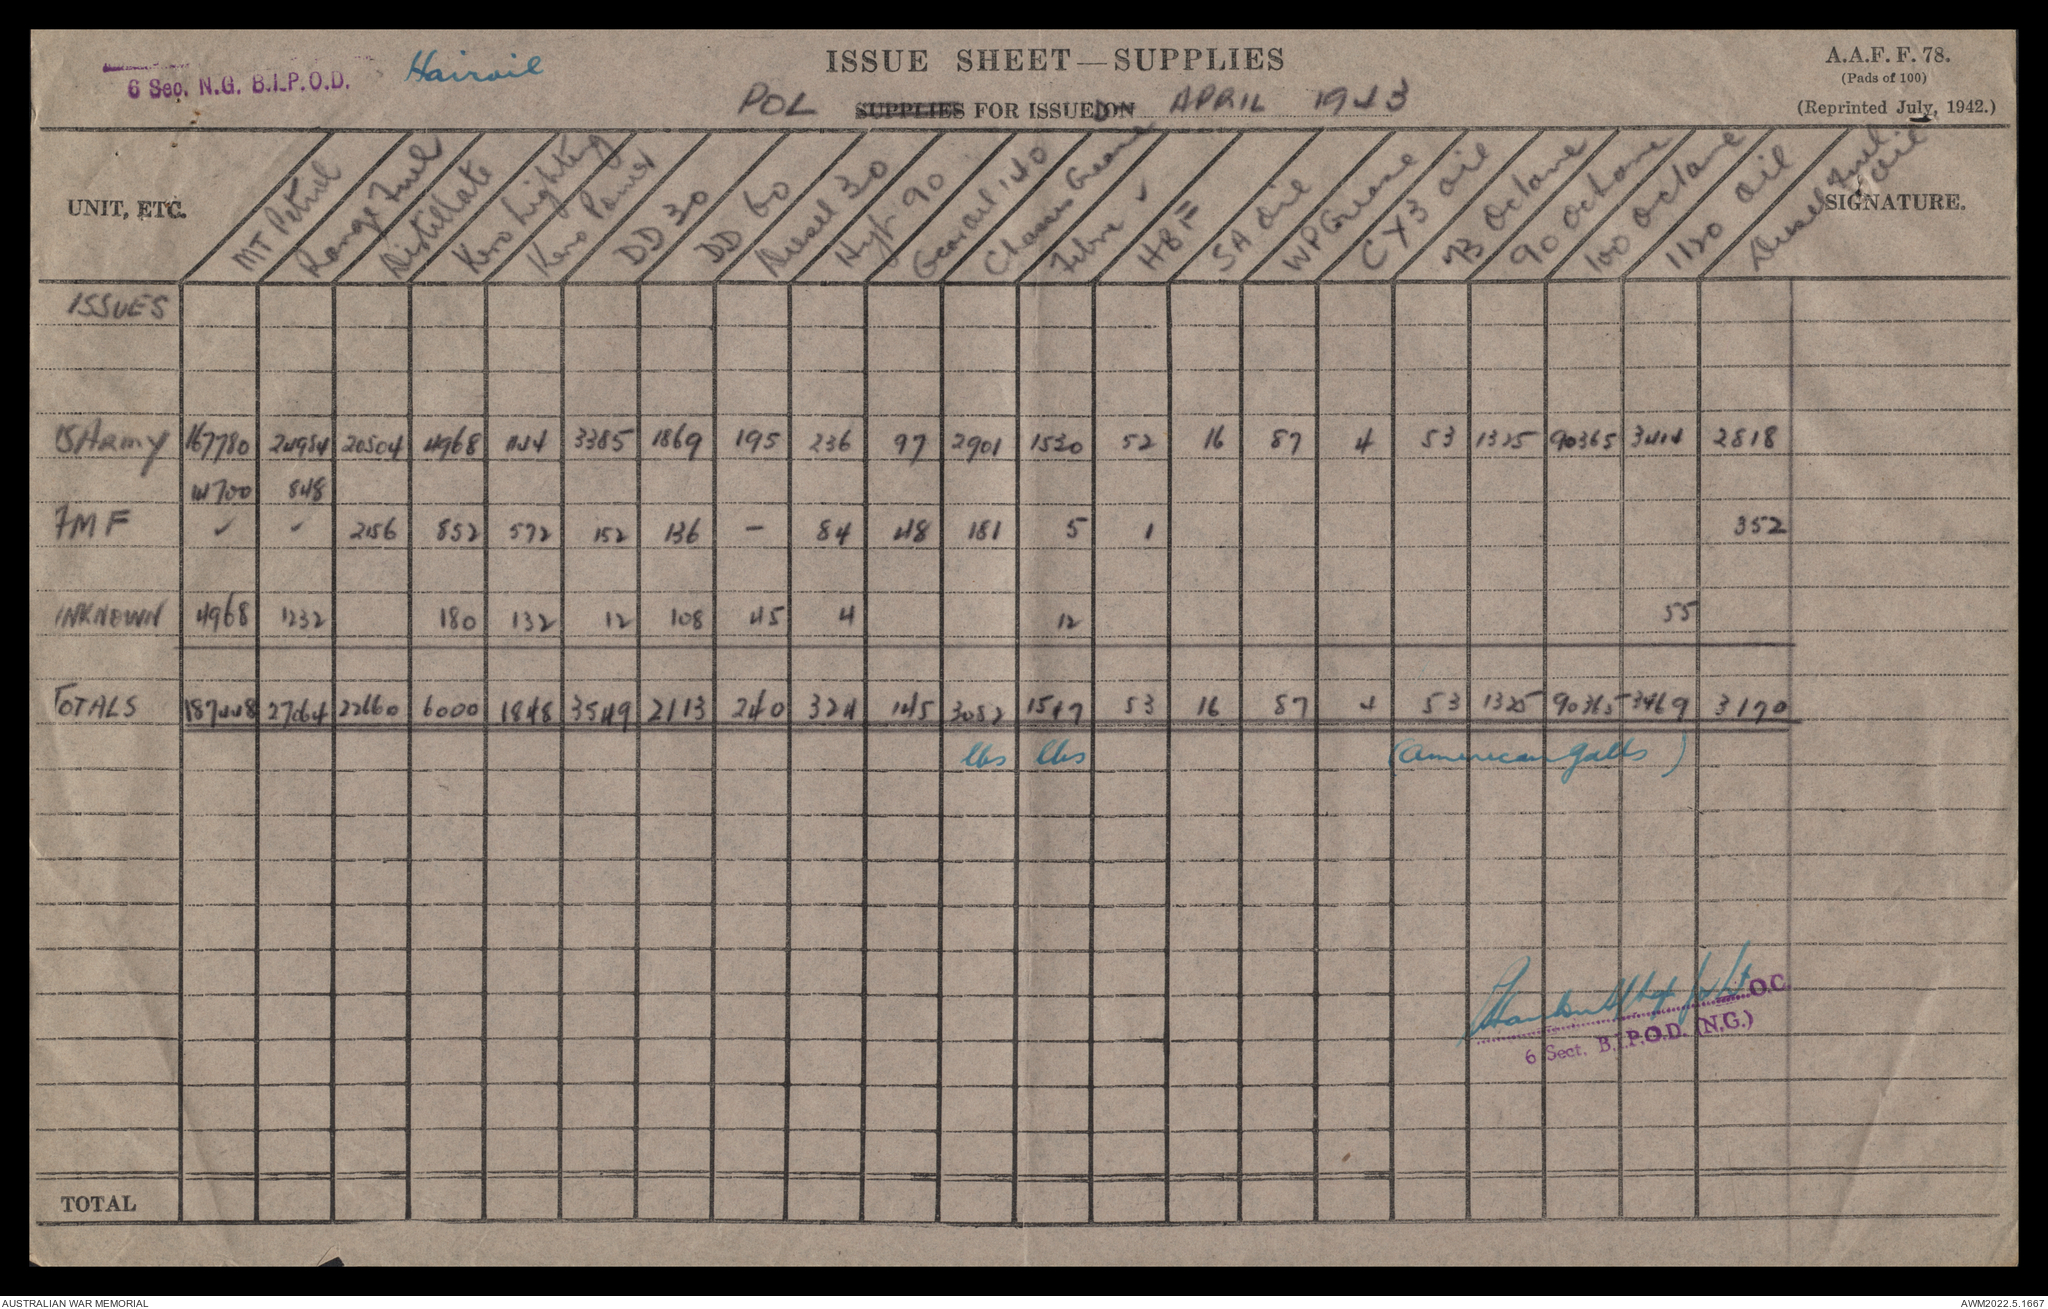 6 Sec. N.G. B.I.P.O.D.
Hairoil
ISSUE SHEET—SUPPLIES
A.A.F. F. 78.
(Pads of 100)
POL SUPPLIES FOR ISSUED ON APRIL 1943
(Reprinted July, 1942.)
UNIT, ETC. MT Petrol Range Fuel Distillate Kero Lighting Kero Power DD 30 DD 60 Diesel 30 Hyp 90 Gearoil 140 Chassis Grease Fibre ✓ HBF SA oil WP Grease CY3 oil 73 Octane 90 Octane 100 Octane 1120 oil Diesel Fuel oil SIGNATURE.
ISSUES
Army 167780 24984 20504 4968 1144 3385 1869 195 236 97 2901 1530 52 16 87 4 53 1325 90365 3414 2818
14700 848
FMF ✓ ✓ 2156 852 572 152 136 – 84 48 181 5 1 352
UNKNOWN 4968 1232 180 132 12 108 45 4 12 55
TOTALS 187448 27064 22660 6000 1848 3549 2113 240 324 145 3082 1547 53 16 87 4 53 1325 90365 3469 3170
lbs lbs (American galls)
O.C.
6 Sect. B.I.P.O.D. (N.G.)
TOTAL
AUSTRALIAN WAR MEMORIAL
AWM2022.5.1667